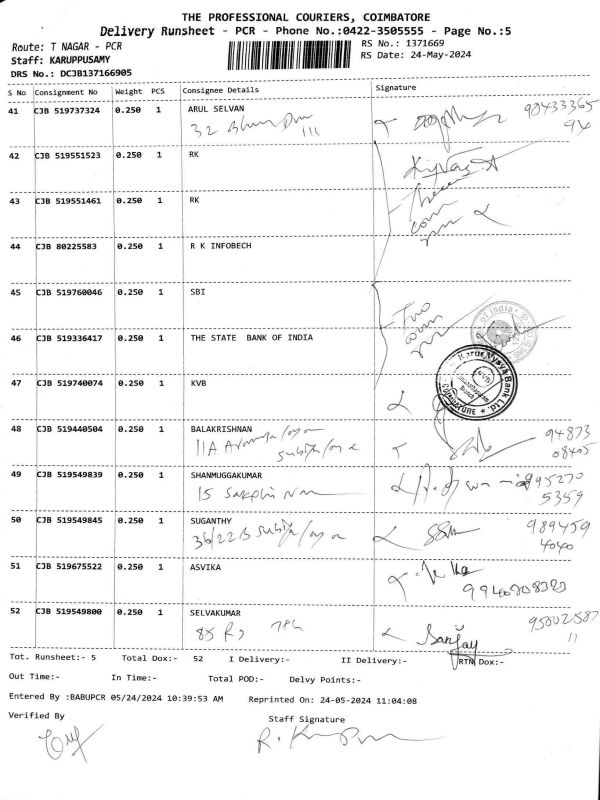 THE PROFESSIONAL COURIERS, COIMBATORE
Delivery Runsheet - PCR - Phone No.:0422-3505555 - Page No.:5
Route: T NAGAR - PCR
RS No.: 1371669
Staff: KARUPPUSAMY
RS Date: 24-May-2024
DRS No.: DCJB137166905
S No Consignment No Weight PCS Consignee Details Signature
41 CJB 519737324 0.250 1 ARUL SELVAN
32
111
90433365
94
42 CJB 519551523 0.250 1 RK
43 CJB 519551461 0.250 1 RK
Three
Coun
44 CJB 80225583 0.250 1 R K INFOBECH
45 CJB 519760046 0.250 1 SBI
Two
46 CJB 519336417 0.250 1 THE STATE BANK OF INDIA
of India
Karur Vysya Bank Ltd.
COIMBATORE
47 CJB 519740074 0.250 1 KVB
48 CJB 519440504 0.250 1 BALAKRISHNAN
11A
94873
08405
49 CJB 519549839 0.250 1 SHANMUGGAKUMAR
15 Sakthi
995270
5359
50 CJB 519549845 0.250 1 SUGANTHY
36/22B
989459
4040
51 CJB 519675522 0.250 1 ASVIKA
52 CJB 519549800 0.250 1 SELVAKUMAR
85
Sanjay
95002587
11
Tot. Runsheet:- 5 Total Dox:- 52 I Delivery:- II Delivery:- RTN Dox:-
Out Time:- In Time:- Total POD:- Delvy Points:-
Entered By :BABUPCR 05/24/2024 10:39:53 AM Reprinted On: 24-05-2024 11:04:08
Verified By
Staff Signature